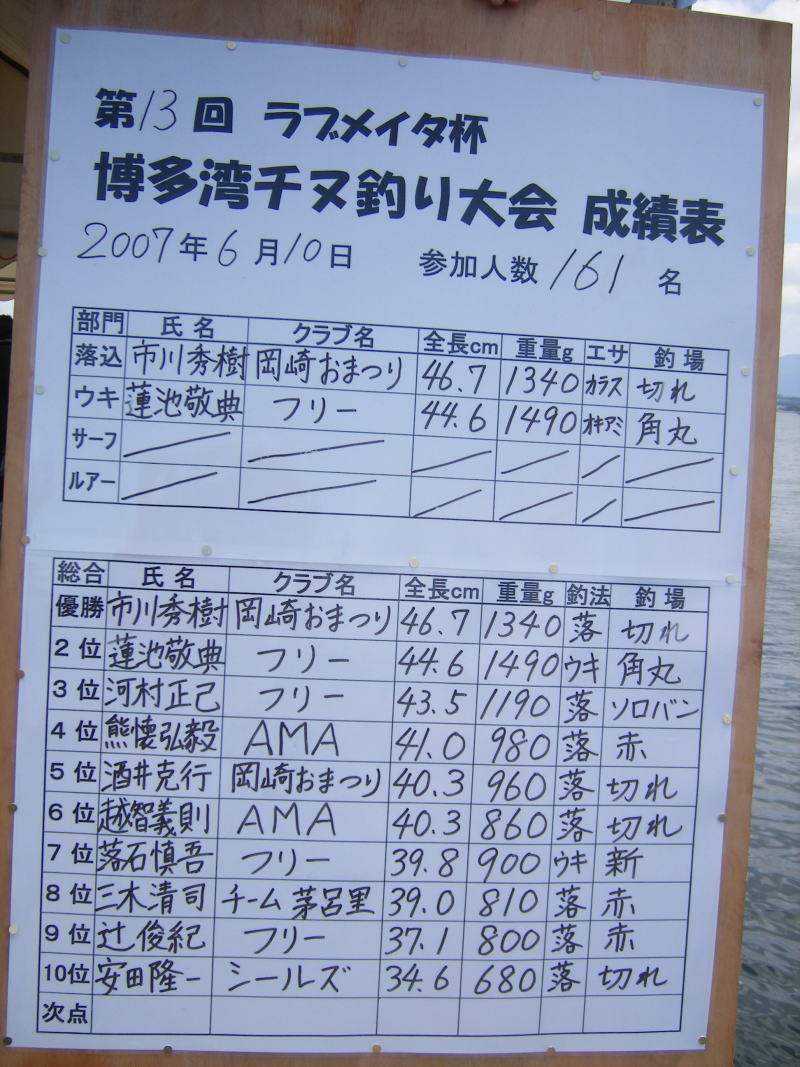 第13回 ラブメイタ杯
博多湾チヌ釣り大会 成績表
2007年6月10日 参加人数 161 名
部門 氏名 クラブ名 全長cm 重量g エサ 釣場
落込 市川秀樹 岡崎おまつり 46.7 1340 カラス 切れ
ウキ 蓮池敬典 フリー 44.6 1490 オキアミ 角丸
サーフ
ルアー
総合 氏名 クラブ名 全長cm 重量g 釣法 釣場
優勝 市川秀樹 岡崎おまつり 46.7 1340 落 切れ
2位 蓮池敬典 フリー 44.6 1490 ウキ 角丸
3位 河村正己 フリー 43.5 1190 落 ソロバン
4位 熊懐弘毅 AMA 41.0 980 落 赤
5位 酒井克行 岡崎おまつり 40.3 960 落 切れ
6位 越智義則 AMA 40.3 860 落 切れ
7位 落石慎吾 フリー 39.8 900 ウキ 新
8位 三木清司 チーム茅呂里 39.0 810 落 赤
9位 辻俊紀 フリー 37.1 800 落 赤
10位 安田隆一 シールズ 34.6 680 落 切れ
次点